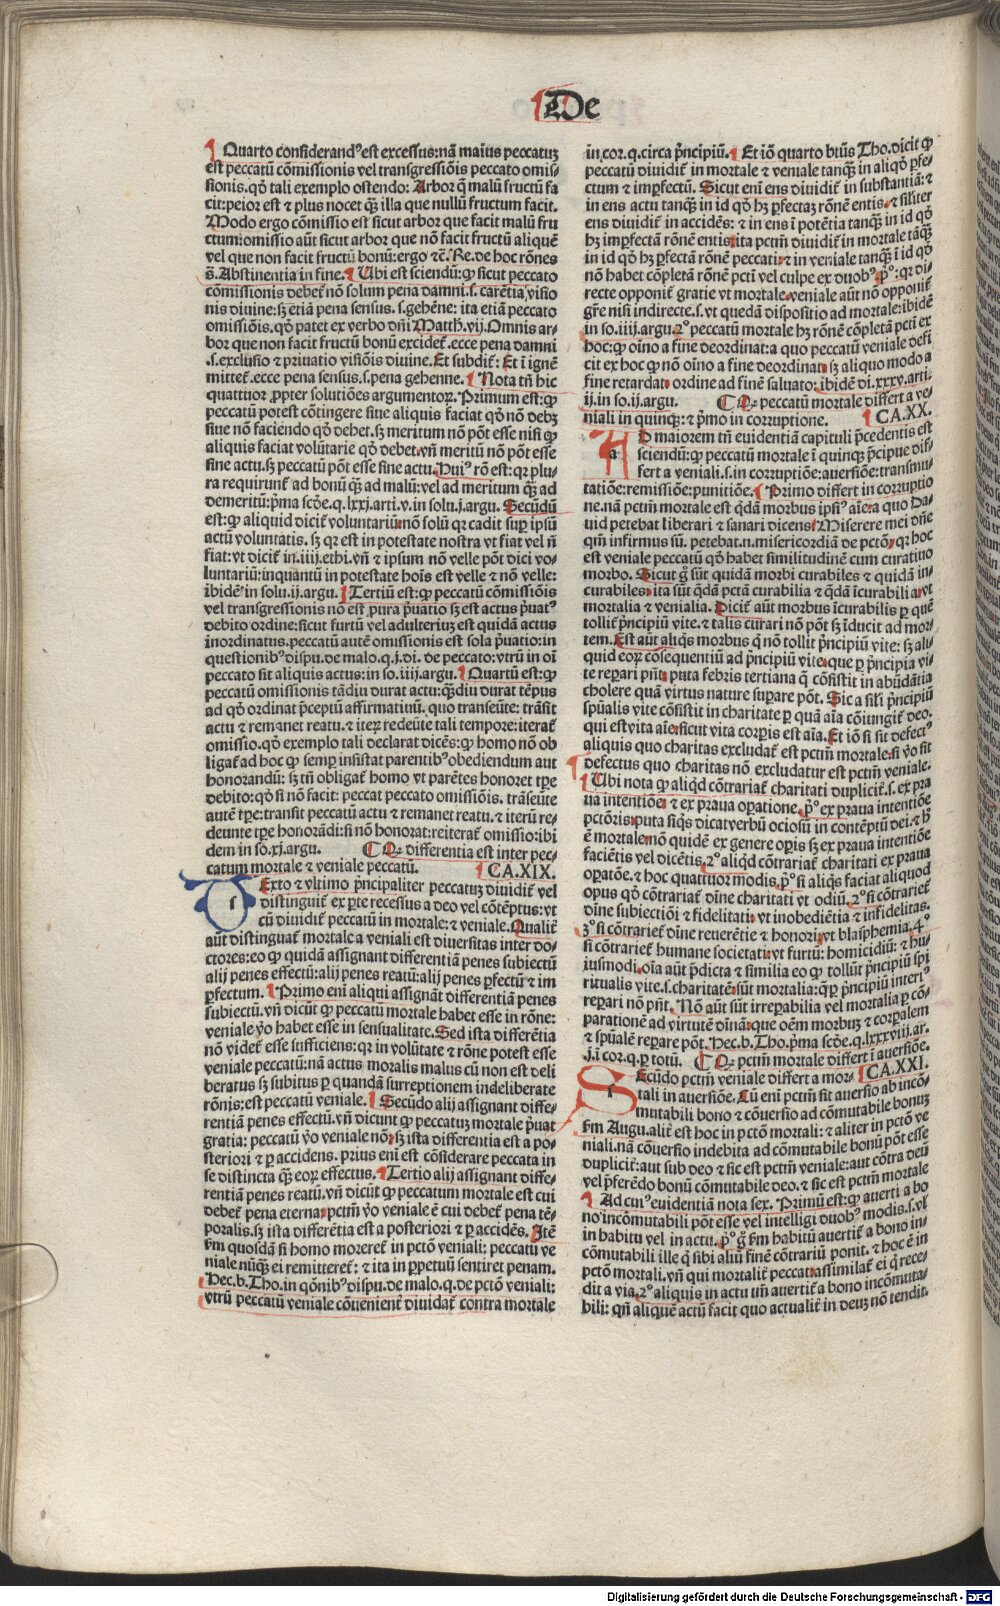 De
¶ Quarto considerandꝰ est excessus: nã maius peccatuꝫ
est peccatũ cõmissionis vel transgressiõis peccato omis-
sionis. qđ tali exemplo ostendo: Arbor q̃ malũ fructũ fa
cit: peior est & plus nocet q̃ꝫ illa que nullũ fructum facit.
Modo ergo cõmissio est sicut arbor que facit malũ fru
ctum: omissio aũt sicut arbor que nõ facit fructũ aliquẽ
vel que non facit fructũ bonũ: ergo &c̃. Re. de hoc rõnes
s̃. Abstinentia in fine. ¶ Ubi est sciendũ: ꝙ sicut peccato
cõmissionis debet̃ nõ solum pena damni .s. carẽtia visio
nis diuine: sꝫ etiã pena sensus .s. gehẽne: ita etiã peccato
omissiõis. qđ patet ex verbo dñi Matth̃. vij. Omnis ar-
bor que non facit fructũ bonũ excidet̃. ecce pena damni
.s. exclusio & priuatio visiõis diuine. Et subdit̃: Et ĩ ignẽ
mittet̃. ecce pena sensus .s. pena gehenne. ¶ Nota tñ hic
quattuor ꝓpter solutiões argumentoꝝ. Primum est: ꝙ
peccatũ potest cõtingere siue aliquis faciat qđ nõ debꝫ
siue nõ faciendo qđ debet. sꝫ meritum nõ põt esse nisi ꝙ
aliquis faciat volũtarie qđ debet. vñ meritũ nõ põt esse
sine actu. sꝫ peccatũ põt esse sine actu. Huiꝰ rõ est: qꝛ plu-
ra requirunt̃ ad bonũ q̃ꝫ ad malũ: vel ad meritum q̃ꝫ ad
demeritũ: p̃ma scđe. q. lxxj. arti. v. in solu. j. argu. Secũdũ
est: ꝙ aliquid dicit̃ voluntariũ: nõ solũ qꝛ cadit suꝑ ipsũ
actũ voluntatis. sꝫ qꝛ est in potestate nostra vt fiat vel ñ
fiat: vt dicit̃ in .iiij. ethi. vñ & ipsum nõ velle põt dici vo-
luntariũ: inquantũ in potestate hoĩs est velle & nõ velle:
ibidẽ in solu. ij. argu. ¶ Tertiũ est: ꝙ peccatũ cõmissiõis
vel transgressionis nõ est pura p̃uatio sꝫ est actus p̃uatꝰ
debito ordine: sicut furtũ vel adulteriuꝫ est quidã actus
inordinatus. peccatũ autẽ omissionis est sola p̃uatio: in
questionibꝰ dispu. de malo. q. j. di. de peccato: vtrũ in oĩ
peccato sit aliquis actus: in so. iiij. argu. ¶ Quartũ est: ꝙ
peccatũ omissionis tãdiu durat actu: q̃ꝫdiu durat tẽpus
ad qđ ordinat p̃ceptũ affirmatiuũ. quo transeũte: trãsit
actu & remanet reatu. & iteꝝ redeũte tali tempore: iterat̃
omissio. qđ exemplo tali declarat dicẽs: ꝙ homo nõ ob
ligat̃ ad hoc ꝙ semꝑ insistat parentibꝰ obediendum aut
honorandũ: sꝫ tñ obligat̃ homo vt parẽtes honoret tꝑe
debito: qđ si nõ facit: peccat peccato omissiõis. trãseũte
autẽ tꝑe: transit peccatũ actu & remanet reatu. & iterũ re-
deunte tꝑe honorãdi: si nõ honorat: reiterat̃ omissio: ibi
dem in so. xj. argu. ¶ Qꝫ differentia est inter pec-
catum mortale & veniale peccatũ. ¶ CA. XIX.
Exto & vltimo p̃ncipaliter peccatuꝫ diuidit̃ vel
distinguit̃ ex ꝑte recessus a deo vel cõtẽptus: vt
cũ diuidit̃ peccatũ in mortale: & veniale. Qualit̃
aũt distinguat̃ mortale a veniali est diuersitas inter do-
ctores: eo ꝙ quidã assignant differentiã penes subiectũ
alij penes effectũ: alij penes reatũ: alij penes ꝑfectũ & im
ꝑfectum. ¶ Primo eni aliqui assignãt differentiã penes
subiectũ. vñ dicũt ꝙ peccatũ mortale habet esse in rõne:
veniale ṽo habet esse in sensualitate. Sed ista differẽtia
nõ videt̃ esse sufficiens: qꝛ in volũtate & rõne potest esse
veniale peccatũ: nã actus moralis malus cũ non est deli
beratus sꝫ subitus ꝑ quandã surreptionem indeliberate
rõnis: est peccatũ veniale. ¶ Secũdo alij assignant diffe-
rentiã penes effectũ. vñ dicunt ꝙ peccatuꝫ mortale p̃uat
gratia: peccatũ ṽo veniale nõ: sꝫ ista differentia est a po-
steriori & ꝑ accidens. prius eni est cõsiderare peccata in
se distincta q̃ꝫ eoꝝ effectus. ¶ Tertio alij assignant diffe-
rentiã penes reatũ. vñ dicũt ꝙ peccatum mortale est cui
debet̃ pena eterna: pctm̃ ṽo veniale ẽ cui debet̃ pena tẽ-
poralis. sꝫ ista differẽtia est a posteriori & ꝑ accidẽs. Itẽ
ßm quosdã si homo moreret̃ in pctõ veniali: peccatũ ve
niale nũq̃ꝫ ei remitteret̃: & ita in ꝑpetuũ sentiret penam.
Hec. b. Tho. in qõnibꝰ dispu. de malo. q. de pctõ veniali:
vtrũ peccatũ veniale cõuenient̃ diuidat̃ contra mortale
in cor. q. circa p̃ncipiũ. ¶ Et iõ quarto btũs Tho. dicit ꝙ
peccatũ diuidit̃ in mortale & veniale tanq̃ꝫ in aliqđ ꝑfe-
ctum & imꝑfectũ. Sicut eni ens diuidit̃ in substantiã: &
in ens actu tanq̃ꝫ in id qđ hꝫ ꝑfectaꝫ rõnẽ entis. & silĩter
ens diuidit̃ in accidẽs: & in ens ĩ potẽtia tanq̃ꝫ in id qđ
hꝫ imꝑfectã rõnẽ entis: ita pctm̃ diuidit̃ in mortale tãq̃ꝫ
in id qđ hꝫ ꝑfectã rõnẽ peccati: & in veniale tanq̃ꝫ ĩ id qđ
nõ habet cõpletã rõnẽ pcti vel culpe ex duobꝰ. pꝰ: qꝛ di-
recte opponit̃ gratie vt mortale. veniale aũt nõ opponit̃
gr̃e nisi indirecte .s. vt quedã dispositio ad mortale: ibidẽ
in so. iiij. argu. 2ꝰ peccatũ mortale hꝫ rõnẽ cõpletã pcti ex
hoc: ꝙ oĩno a fine deordinat: a quo peccatũ veniale defi
cit ex hoc ꝙ nõ oĩno a fine deordinat: sꝫ aliquo modo a
fine retardat: ordine ad finẽ saluato: ibidẽ di. xxxv. arti.
ij. in so. ij. argu. ¶ Qꝫ peccatũ mortale differt a ve-
niali in quinqꝫ: & p̃mo in corruptione. ¶ CA. XX.
AD maiorem tñ euidentiã capituli p̃cedentis est
sciendũ: ꝙ peccatũ mortale ĩ quinqꝫ p̃cipue dif-
fert a veniali .s. in corruptiõe: auersiõe: transmu-
tatiõe: remissiõe: punitiõe. ¶ Primo differt in corruptio
ne. nã pctm̃ mortale est q̃dã morbus ipsiꝰ aĩe: a quo Da
uid petebat liberari & sanari dicens: Miserere mei dñe
qm̃ infirmus sũ. petebat .n. misericordiã de pctõ. qꝛ hoc
est veniale peccatũ qđ habet similitudinẽ cum curatino
morbo. Sicut g̃ sũt quidã morbi curabiles & quidã in-
curabiles: ita sũt q̃dã pctã curabilia & q̃dã ĩcurabilia. vt
mortalia & venialia. Dicit̃ aũt morbus ĩcurabilis ꝑ quẽ
tollit̃ p̃ncipiũ vite. & talis curari nõ põt sꝫ ĩducit ad mor
tem. Est aũt aliq̃s morbus q̃ nõ tollit p̃ncipiũ vite: sꝫ ali
quid eoꝝ cõsequentiũ ad p̃ncipiũ vite. que ꝑ p̃ncipia vi-
te reꝑari pñt: puta febris tertiana q̃ cõsistit in abũdãtia
cholere quã virtus nature suꝑare põt. Sic a silĩ p̃ncipiũ
spũalis vite cõsistit in charitate ꝑ quã aĩa cõiungit̃ deo.
qui est vita aĩe: sicut vita corꝑis est aĩa. Et iõ si sit defectꝰ
aliquis quo charitas excludat̃ est pctm̃ mortale. si ṽo sit
defectus quo charitas nõ excludatur est pctm̃ veniale.
¶ Ubi nota ꝙ aliqđ cõtrariat̃ charitati duplicit̃ .s. ex pra
ua intentiõe: & ex praua oꝑatione. pꝰ ex praua intentiõe
pctõris: puta siq̃s dicat verbũ ociosũ in contẽptũ dei. & h̃
ẽ mortale: nõ quidẽ ex genere oꝑis sꝫ ex praua intentiõe
faciẽtis vel dicẽtis. 2ꝰ aliqđ cõtrariat̃ charitati ex praua
oꝑatõe. & hoc quattuor modis. pꝰ si aliq̃s faciat aliquod
opus qđ cõtrariat̃ dĩne charitati vt odiũ. 2ꝰ si cõtrariet̃
dĩne subiectiõi & fidelitati: vt inobediẽtia & infidelitas.
3ꝰ si cõtrariet̃ dĩne reuerẽtie & honori: vt blasphemia. 4ꝰ
si cõtrariet̃ humane societati: vt furtũ: homicidiũ: & hu-
iusmodi. oĩa aũt p̃dicta & similia eo ꝙ tollũt p̃ncipiũ spi
ritualis vite .s. charitatẽ: sũt mortalia: q̃ꝫ ꝑ p̃ncipiũ interiꝰ
reꝑari nõ pñt. Nõ aũt sũt irreꝑabilia vel mortalia ꝑ cõ-
parationẽ ad virtutẽ diuinã: que oẽm morbuꝫ & corꝑalem
& spũalẽ reꝑare põt. Hec. b. Tho. p̃ma scđe. q. lxxxviij. ar.
.j. ĩ cor. q. ꝑ totũ. ¶ Qꝫ pctm̃ mortale differt ĩ auersiõe.
Ecũdo pctm̃ veniale differt a mor- ¶ CA. XXI.
tali in auersiõe. Cũ eni pctm̃ sit auersio ab incõ-
mutabili bono & cõuersio ad cõmutabile bonuꝫ
ßm Augu. alit̃ est hoc in pctõ mortali: & aliter in pctõ ve
niali. nã cõuersio indebita ad cõmutabile bonũ põt esse
duplicit̃: aut sub deo & sic est pctm̃ veniale: aut cõtra deũ
vel p̃ferẽdo bonũ cõmutabile deo. & sic est pctm̃ mortale
¶ Ad cuiꝰ euidentiã nota sex. Primũ est: ꝙ auerti a bo
no incõmutabili põt esse vel intelligi duobꝰ modis .s. vl̃
in habitu vel in actu. pꝰ g̃ ßm habitũ auertit̃ a bono in-
cõmutabili ille q̃ sibi aliũ finẽ cõtrariũ ponit. & hoc ẽ in
pctõ mortali. vñ qui mortalit̃ peccat: assimilat̃ ei q̃ rece-
dit a via. 2ꝰ aliquis in actu tm̃ auertit̃ a bono incõmuta-
bili: qñ aliquẽ actũ facit quo actualit̃ in deuꝫ nõ tendit.
Digitalisierung gefördert durch die Deutsche Forschungsgemeinschaft - DFG